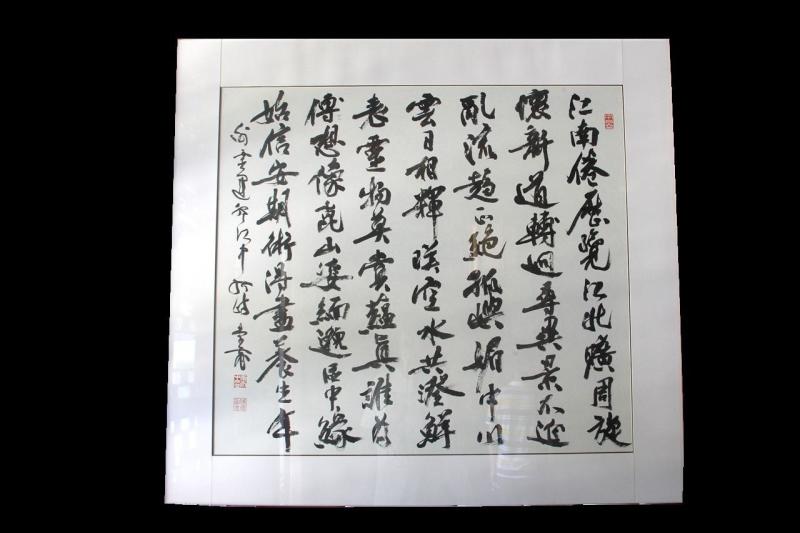 江南倦歷覽江北曠周旋
懷新道轉迴尋異景不延
乱流趨正絕孤嶼媚中川
雲日相輝暎空水共澄鮮
表靈物莫賞蘊真誰為
傳想像崑山姿緬邈區中緣
始信安期術得盡養生年
謝靈運登江中孤嶼